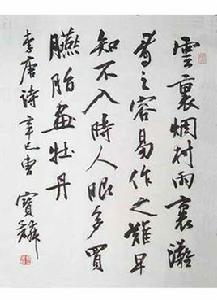 雲裏烟村雨裏灘
看之容易作之難早
知不入時人眼多買
臙脂畫牡丹
李唐诗辛巳書寶麟